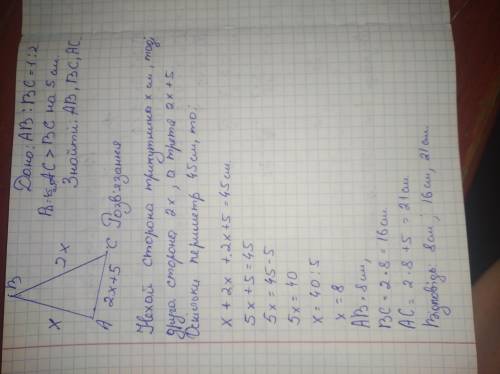 Дано: АВ : ВС = 1 : 2
АС > ВС на 5 см.
Знайти: АВ, ВС, АС
B
x
2x
A
2x+5
C
Розв'язання
Нехай сторона трикутника х см, тоді
друга сторона 2х, а третя 2х+5
Оскільки периметр 45см, то:
x + 2x + 2x+5 = 45см
5x + 5 = 45
5x = 45-5
5x = 40
x = 40 : 5
x = 8
АВ = 8см,
ВС = 2 · 8 = 16см
АС = 2 · 8 + 5 = 21см
Відповідь: 8см; 16см, 21см.